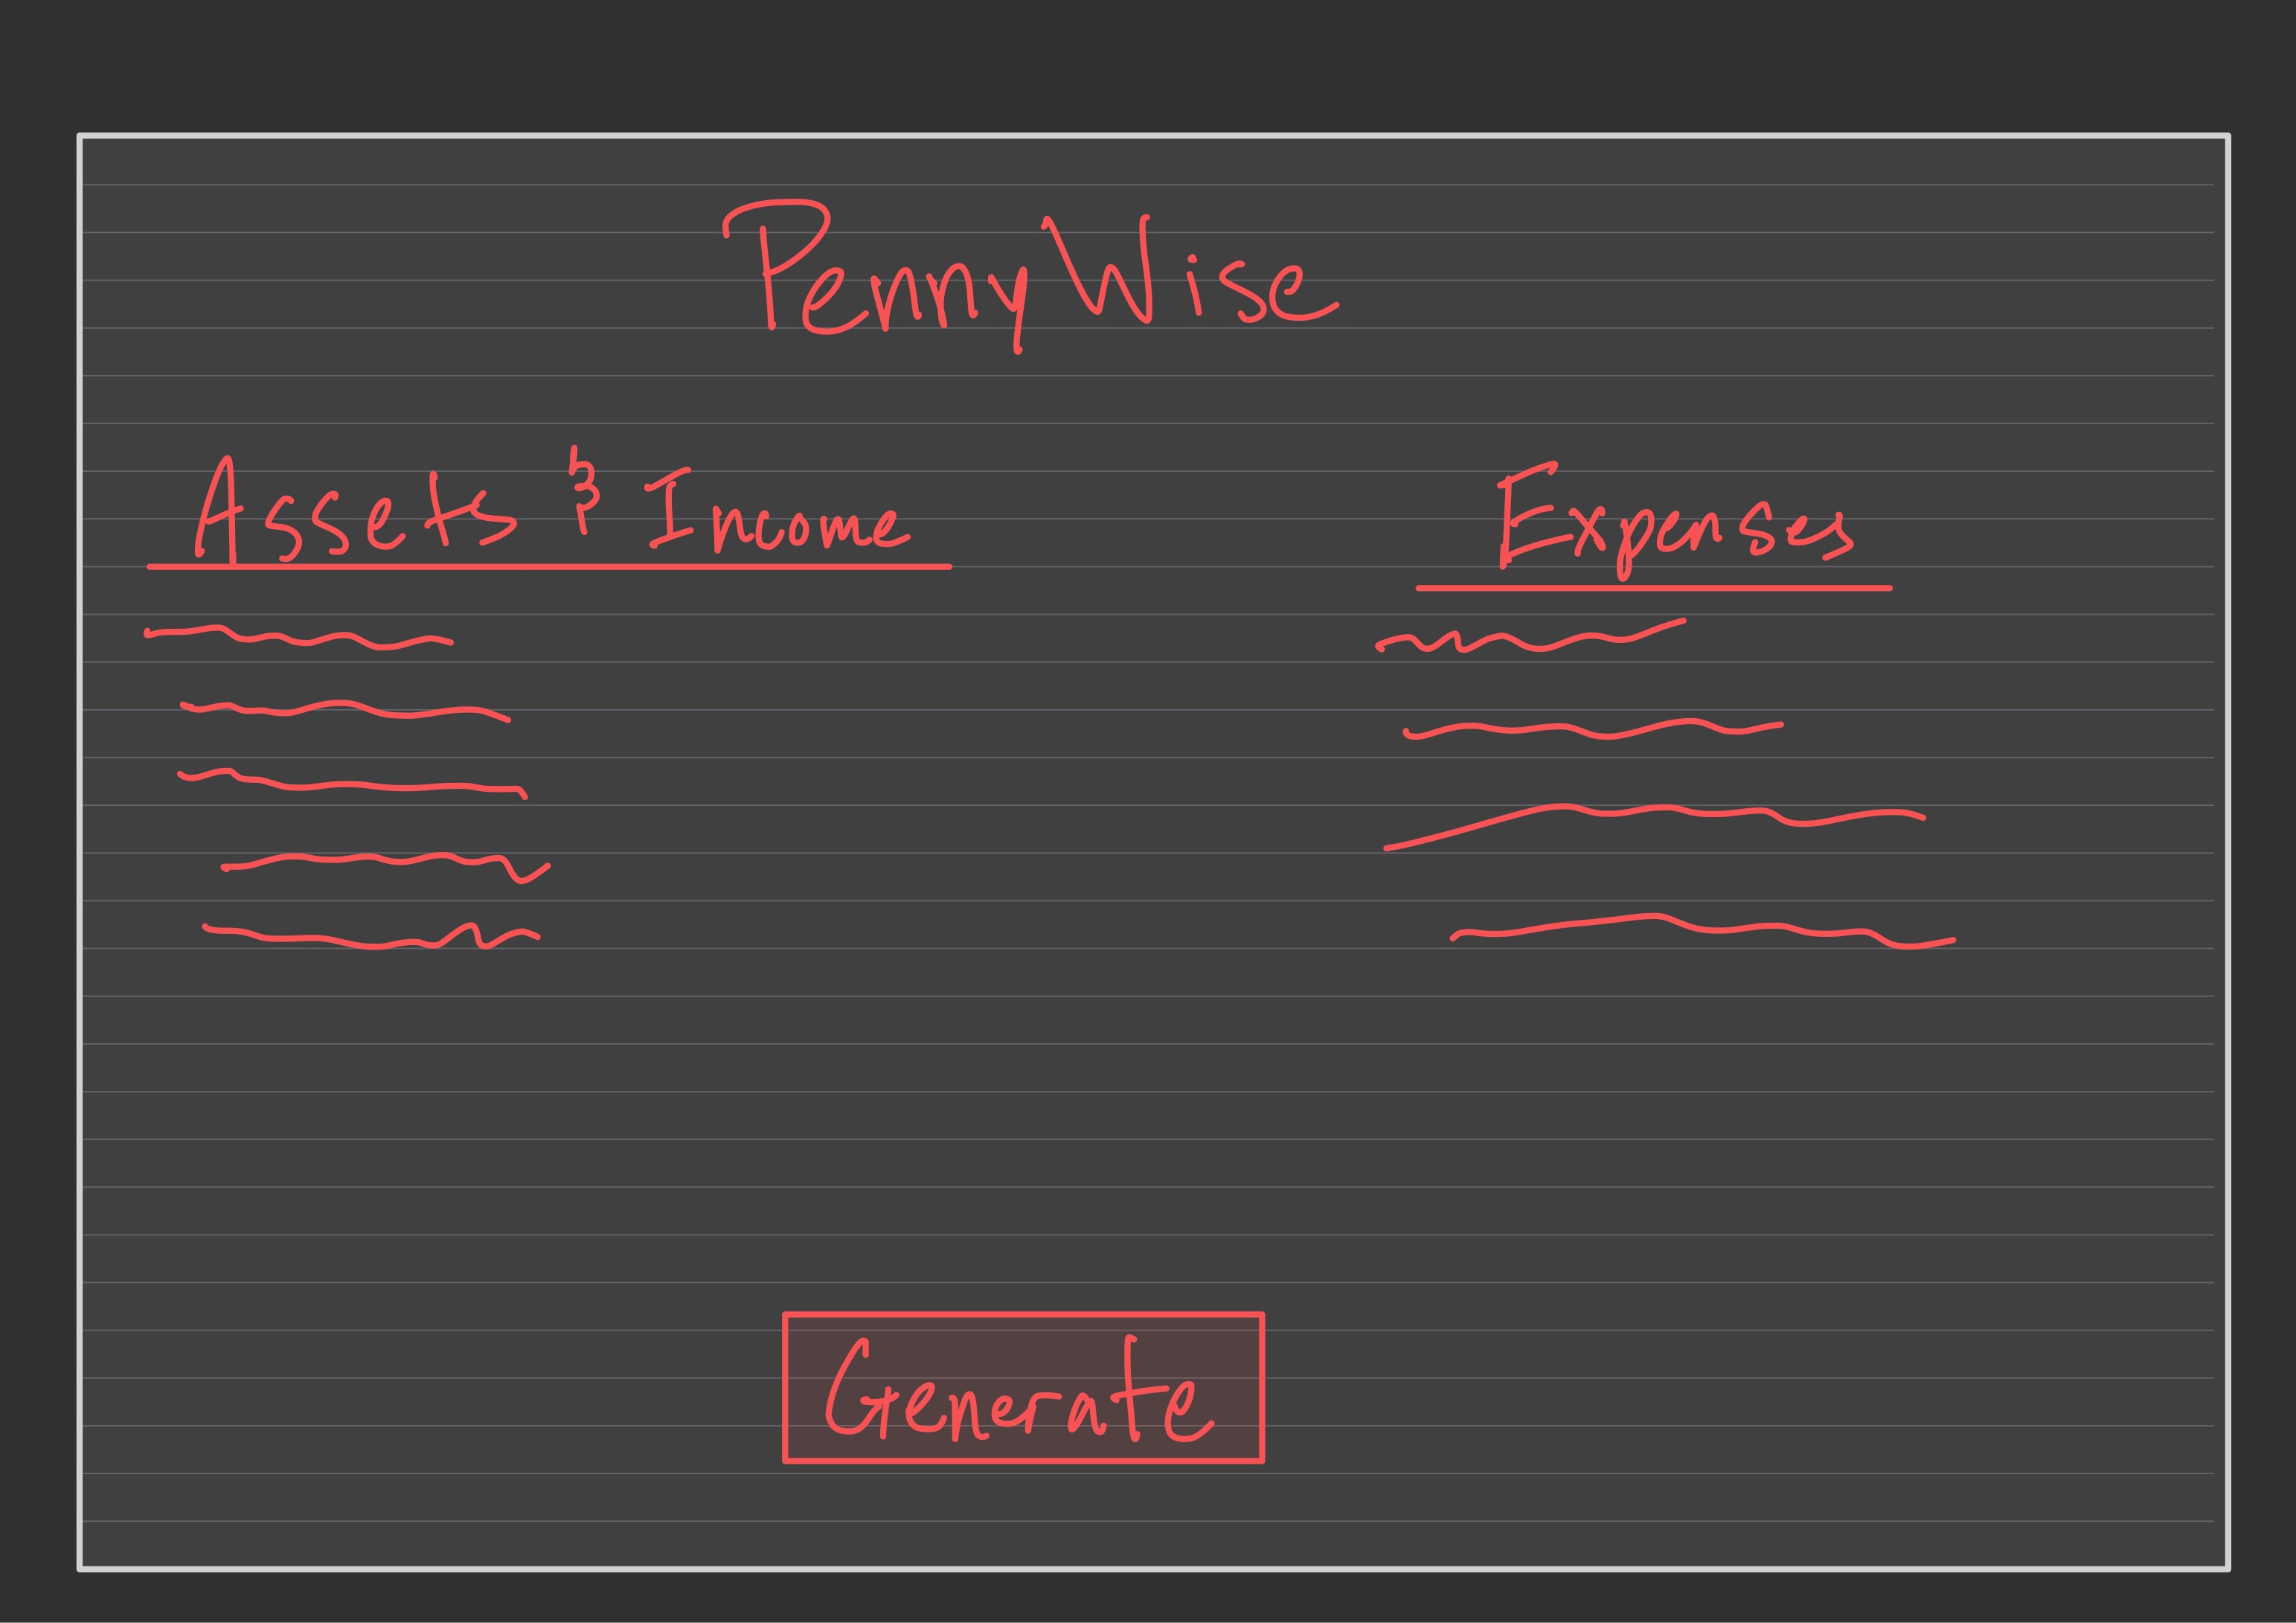 PennyWise
Assets & Income
Expenses
Generate